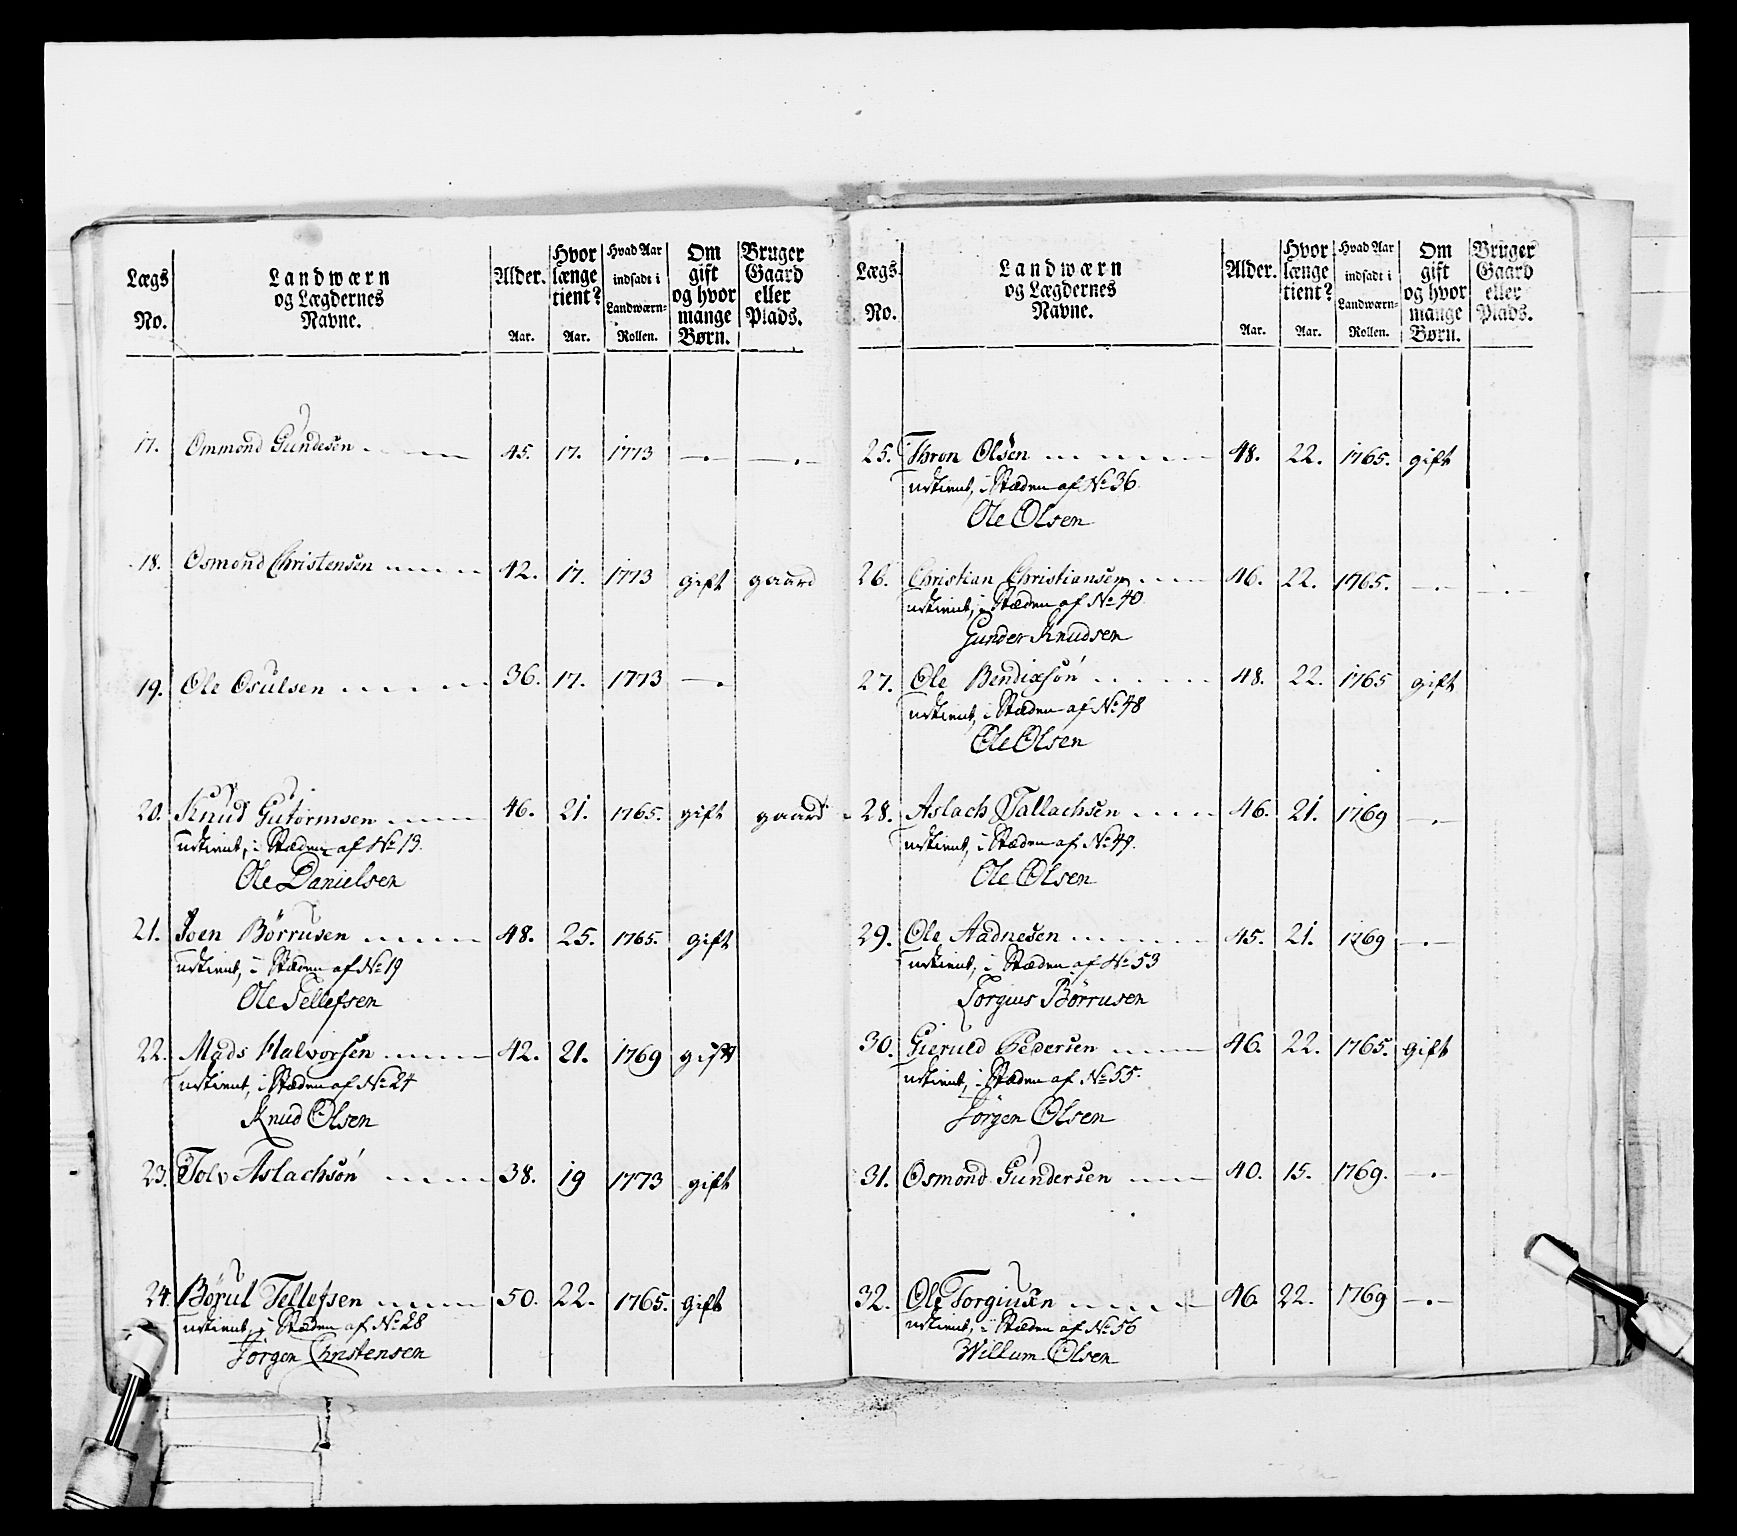 Lægs No. | Landwærn og Lægdernes Navne. | Alder. Aar. | Hvor længe tient? Aar. | Hvad Aar indsadt i Landwærn-Rollen. | Om gift og hvor mange Børn. | Bruger Gaard eller Plads.
17. Ommond Gundesen 45. 17. 1773 —.— —.—
18. Osmond Christensen 42. 17. 1773 gift gaard
19. Ole Osulsen 36. 17. 1773 —.
20. Knud Gutormsen 46. 21. 1765. gift gaard
udtient, i Stæden af No 13.
Ole Danielsen
21. Joen Börrusen 48. 25. 1765. gift
udtient, i Stæden af No 19
Ole Tellefsen
22. Mads Halvorsen 42. 21. 1769 gift
udtient, i Stæden af No 24
Knud Olsen
23. Tolv Aslachsön 38. 19 1773 gift
24. Börul Tellefsen 50. 22. 1765. gift
udtient, i Stæden af No 28
Jörgen Christensen
Lægs. No. | Landwærn og Lægdernes Navne. | Alder. Aar. | Hvor længe tient? Aar. | Hvad Aar indsadt i Landwærn-Rollen. | Om gift og hvor mange Børn. | Bruger Gaard eller Plads.
25. Thron Olsen 48. 22. 1765. gift
udtient, i Stæden af No 36.
Ole Olsen
26. Christian Christiansen 46. 22. 1765. —.— —.—
udtient, i Stæden af No 40
Gunder Knudsen
27. Ole Bendixsön 48. 22. 1765 gift
udtient, i Stæden af No 48
Ole Olsen
28. Aslach Tallachsen 46. 21. 1769 —.—
udtient, i Stæden af No 49.
Ole Olsen
29. Ole Aadnesen 45. 21. 1769 —.—
udtient, i Stæden af No 53
Torgius Börrusen
30. Gieruld Pedersen 46. 22. 1765. gift
udtient, i Stæden af No 55.
Jörgen Olsen
31. Osmond Gundersen 40. 15. 1769. —.—
32. Ole Torgiusen 46. 22. 1769 —.—
udtient, i Stæden af No 56
Willum Olsen